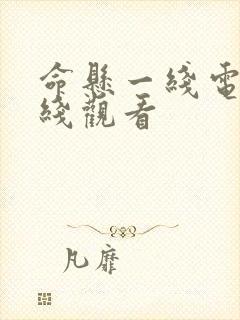 命懸一綫電
綫觀看
凡靡